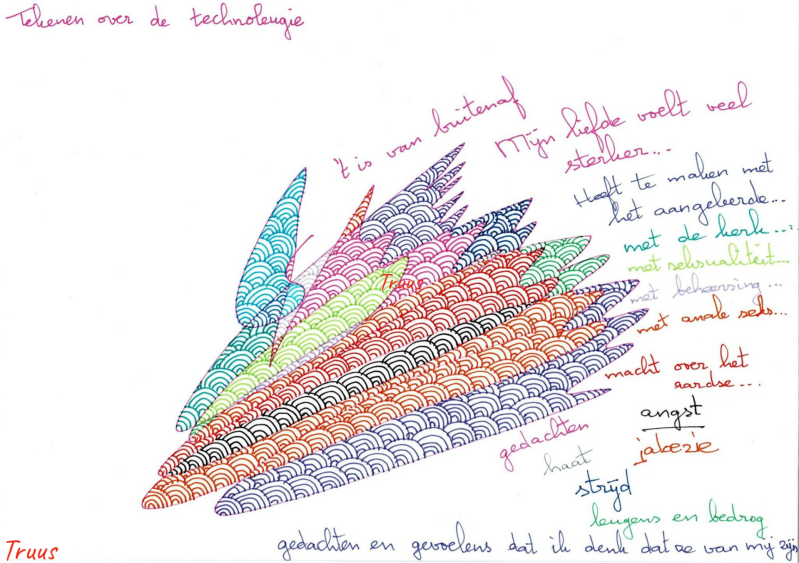 Tekenen over de technoleugie
't is van buitenaf
Mijn liefde voelt veel
sterker...
Heeft te maken met
het aangeleerde...
met de kerk....
met seksualiteit...
met beheersing...
met anale seks...
macht over het
aardse...
angst
jaloezie
gedachten
haat
strijd
leugens en bedrog
gedachten en gevoelens dat ik denk dat ze van mij zijn
Truus
Truus